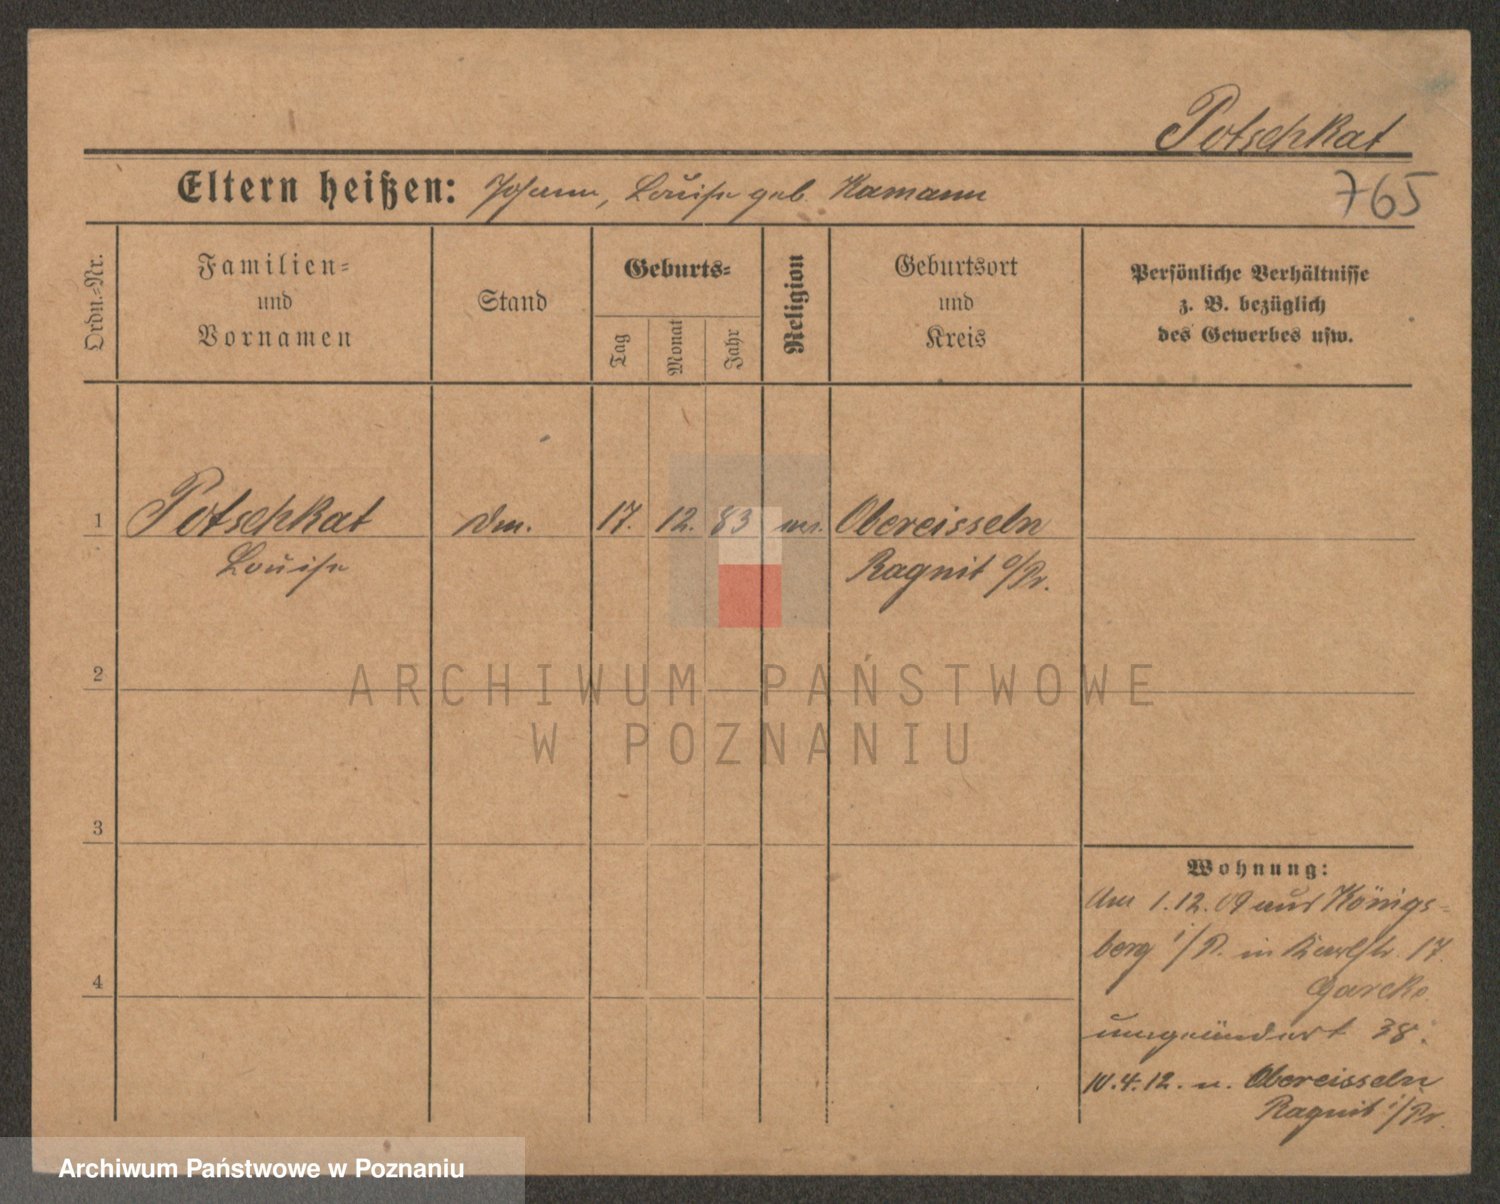 Potschkat
Eltern heißen: Johann, Louise geb. Hamann
765
Ordn.-Nr.
Familien-
und
Vornamen
Stand
Geburts-
Tag
Monat
Jahr
Religion
Geburtsort
und
Kreis
Persönliche Verhältnisse
z. B. bezüglich
des Gewerbes usw.
1 Potschkat 17. 12. 83 Obereisseln
Louise Ragnit o/Pr.
ARCHIWUM PAŃSTWOWE
W POZNANIU
2
3
4
Wohnung:
Am 1.12.09 aus Königs-
berg i/P. in Karlstr. 17.
umgeändert 38.
10.4.12. n. Obereisseln
Ragnit i/Pr.
Archiwum Państwowe w Poznaniu